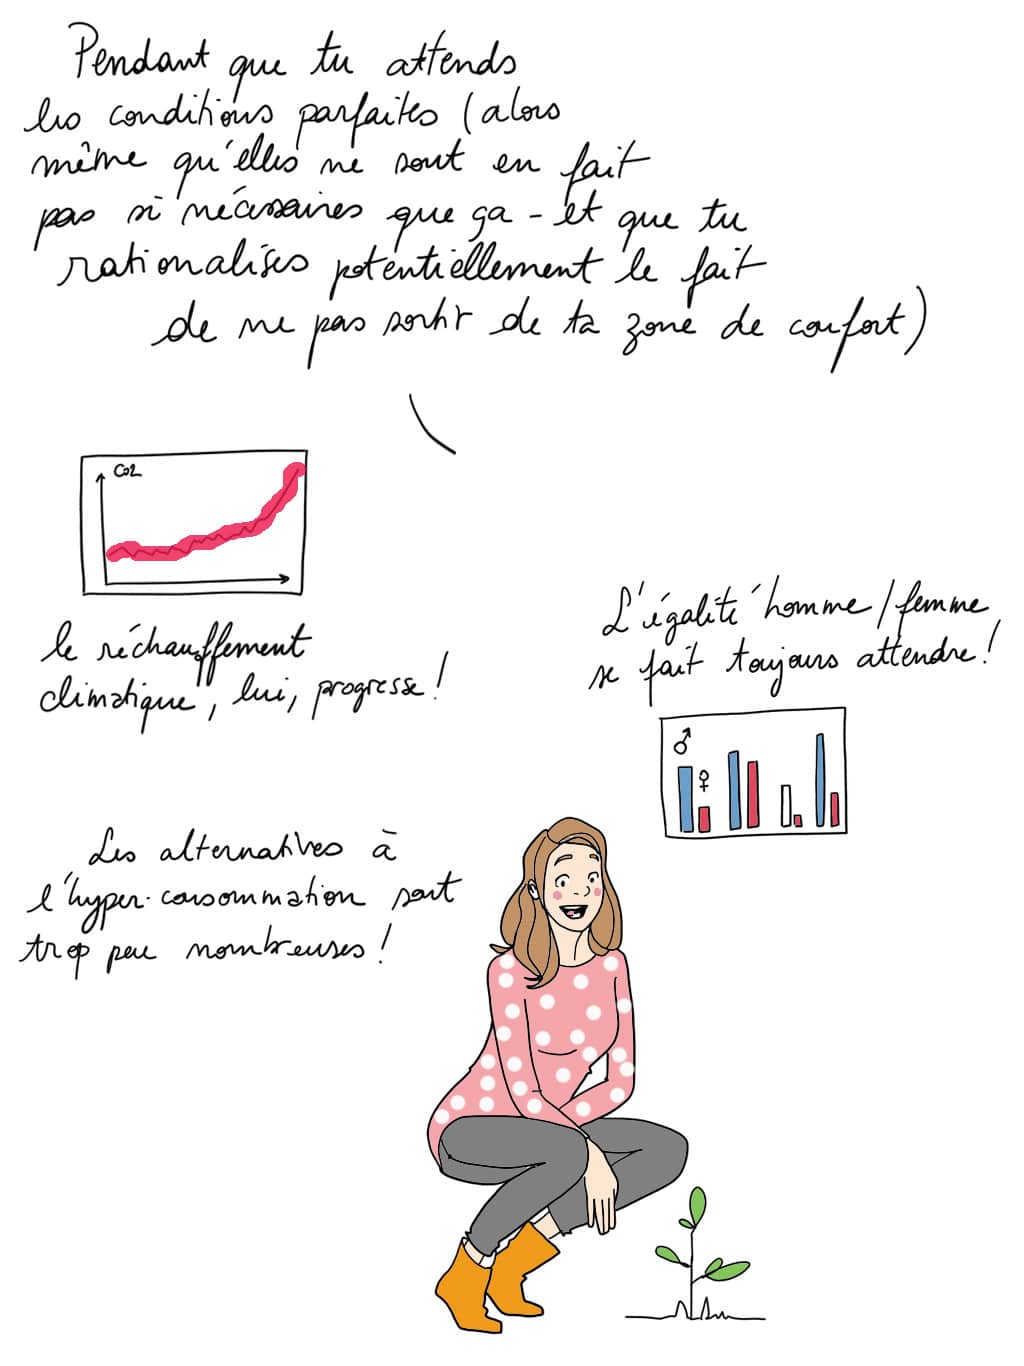 Pendant que tu attends
les conditions parfaites (alors
même qu'elles ne sont en fait
pas si nécessaires que ça - et que tu
rationalises potentiellement le fait
de ne pas sortir de ta zone de confort)
CO2
le réchauffement
climatique, lui, progresse !
L'égalité homme/femme
se fait toujours attendre !
♂
♀
Les alternatives à
l'hyper-consommation sont
trop peu nombreuses !